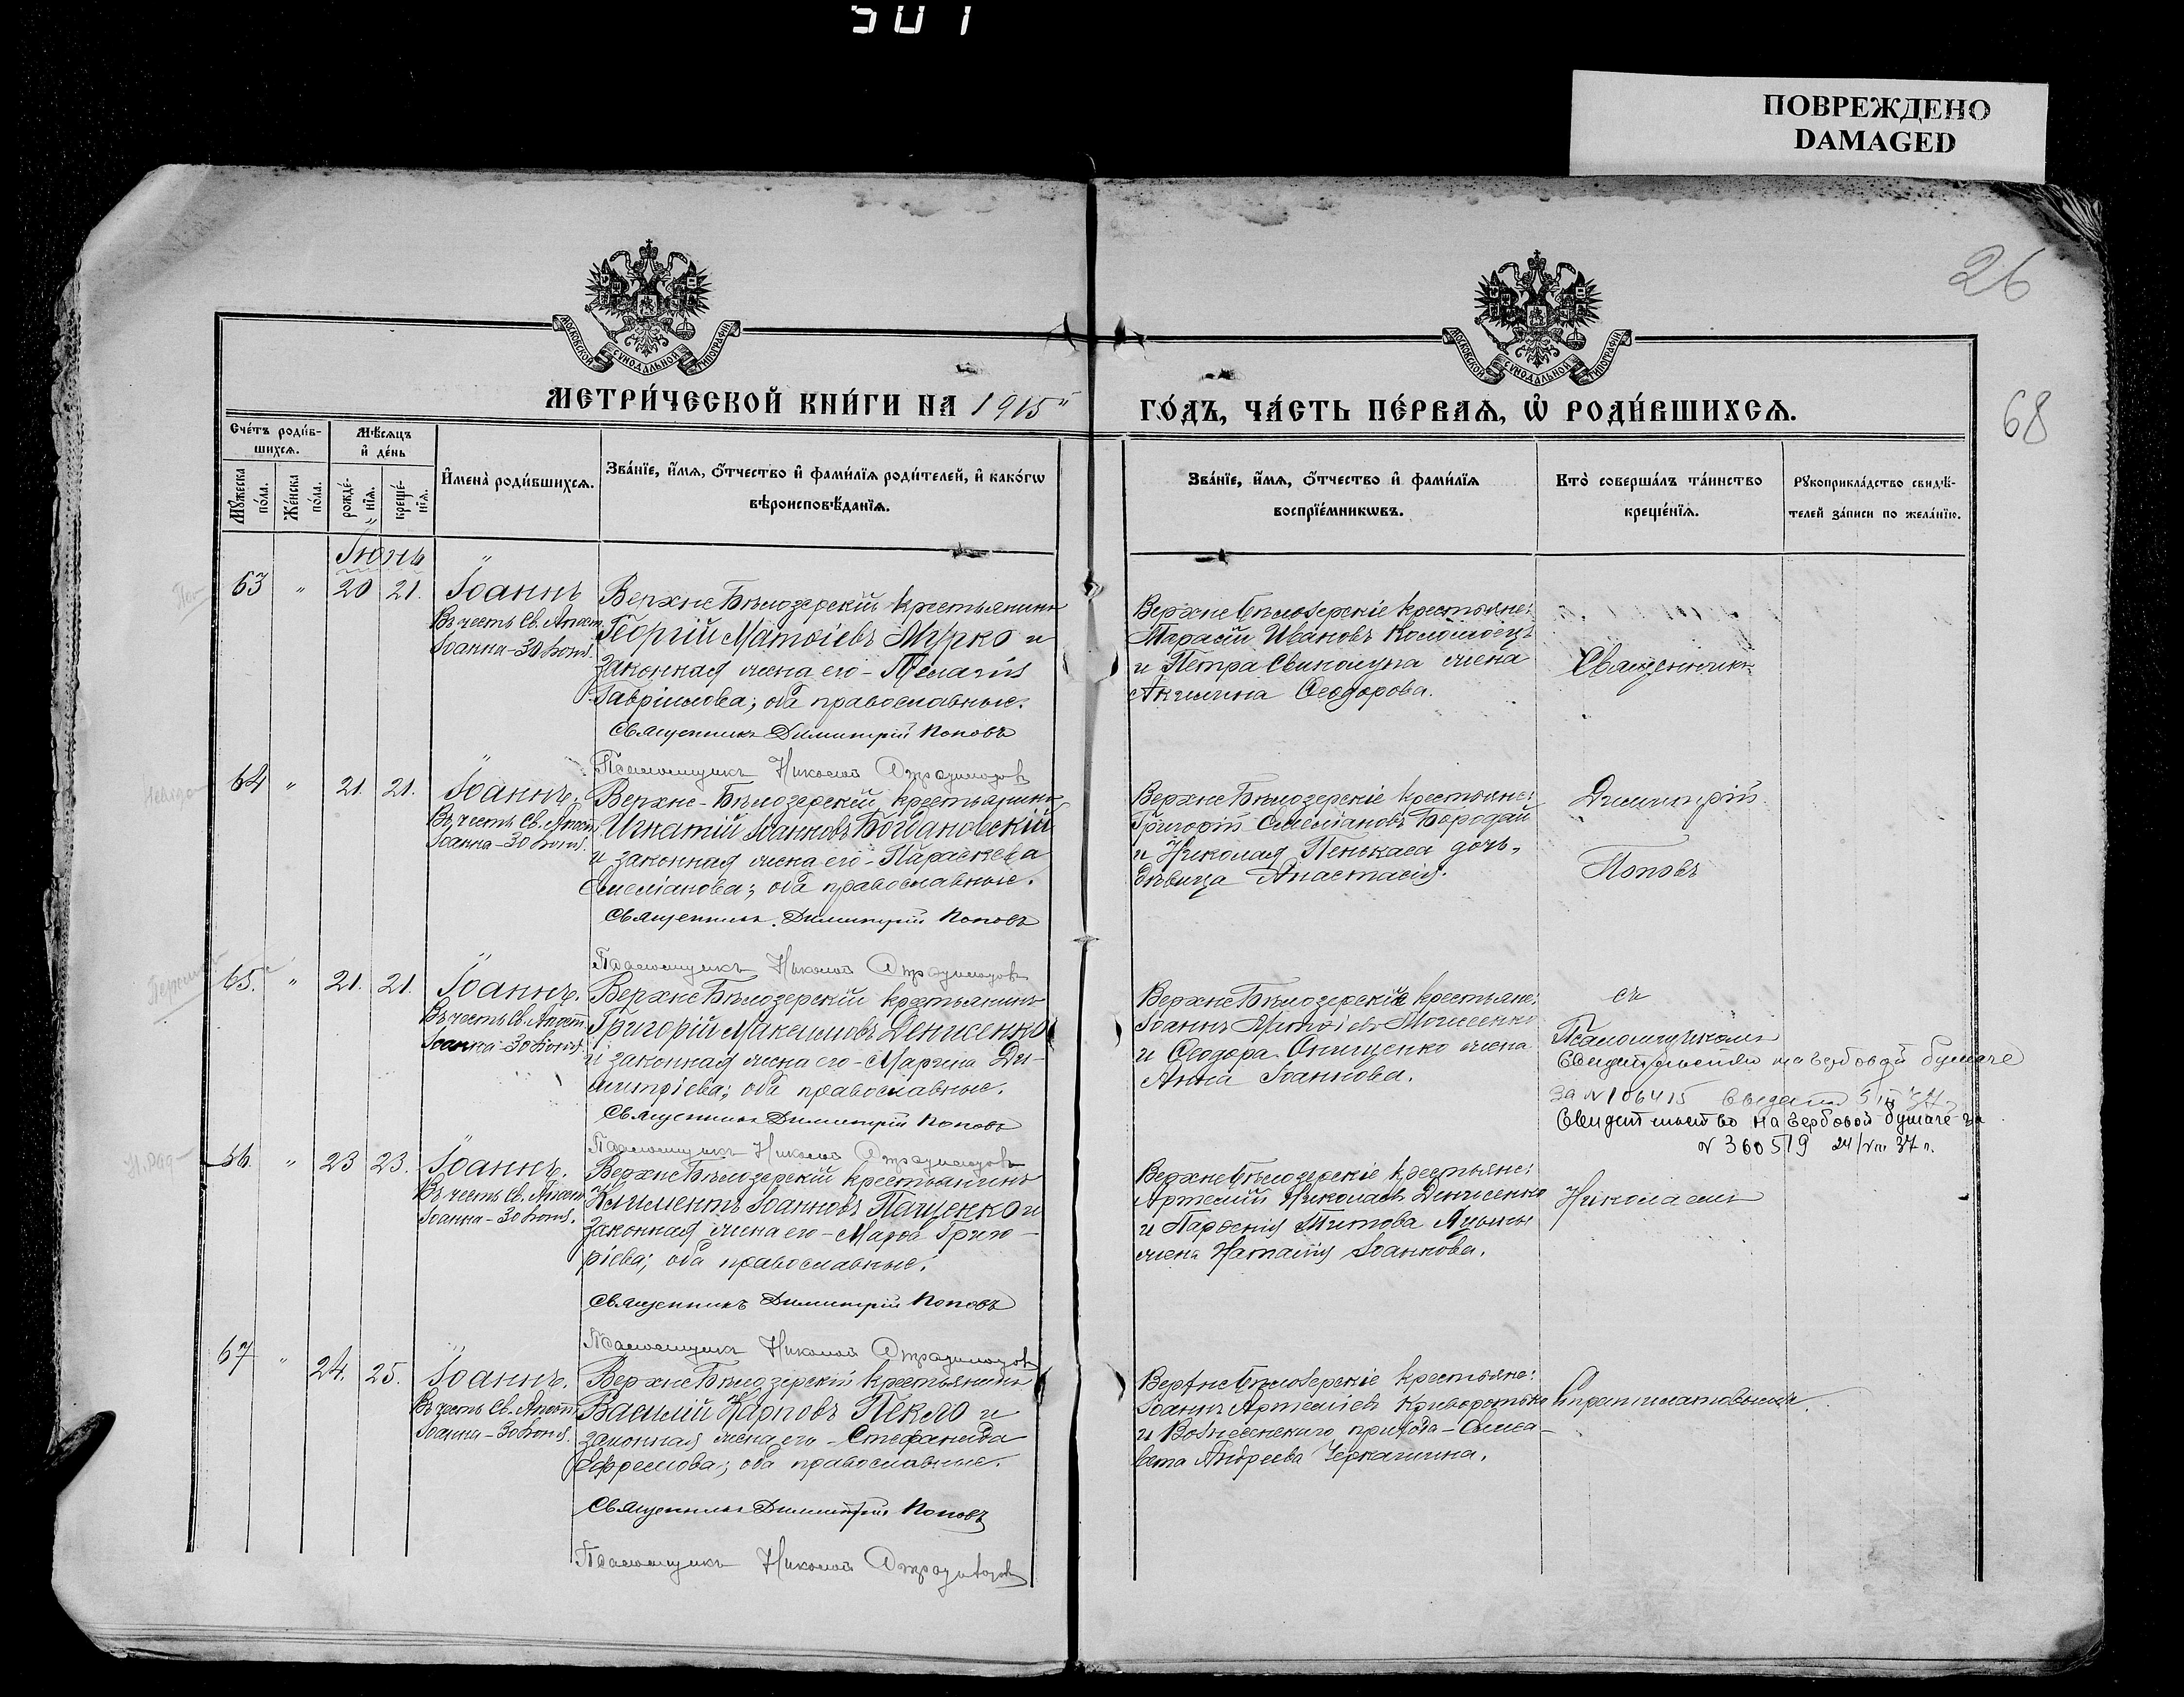 501
ПОВРЕЖДЕНО
DAMAGED
26
68
МОСКОВСКОЙ СѴНОДАЛЬНОЙ ТИПОГРАФІИ
МОСКОВСКОЙ СѴНОДАЛЬНОЙ ТИПОГРАФІИ
МЕТРИ́ЧЕСКОЙ КНИ́ГИ НА 1915
ГО́ДЪ, ЧА́СТЬ ПЕ́РВАЯ, Ѡ҆ РОДИ́ВШИХСЯ.
Сче́тъ роди́в-
шихся.
Мꙋ́жеска по́ла.
Же́нска по́ла.
Мѣ́сяцъ
и҆ де́нь
рожде́-нїя.
креще́-нїя.
И҆мена̀ роди́вшихся.
Зва́нїе, и҆́мя, ѻ҆́тчество и҆ фами́лїя роди́телей, и҆ како́гѡ
вѣроисповѣ́данїя.
Зва́нїе, и҆́мя, ѻ҆́тчество и҆ фами́лїя
воспрїе́мникѡвъ.
Кто̀ соверша́лъ та́инство
креще́нїя.
Рꙋкоприкла́дство свидѣ́-
телей за́писи по жела́нїю.
Іюнь "
63 " 20 21. Іоаннъ
Въ честь Св. Апост.
Іоанна - 30 Іюня.
ВерхнеБѣлозерскій крестьянинъ
Георгій Матѳіевъ Мурко и
законная жена его - Пелагія
Гавріилова; оба православные.
Священникъ Димитрій Поповъ
Псаломщикъ Николай
ВерхнеБѣлозерскіе крестьяне:
Тарасій Ивановъ Коломоецъ
и Петра жена
Акилина Ѳеодорова.
Священникъ
64 " 21. 21. Іоаннъ.
Въ честь Св. Апост.
Іоанна - 30 Іюня.
Верхне-Бѣлозерскій крестьянинъ
Игнатій Іоанновъ Бойановскій
и законная жена его - Параскева
Емеліанова; оба православные.
Священникъ Димитрій Поповъ
Псаломщикъ Николай
ВерхнеБѣлозерскіе крестьяне:
Григорій Емеліановъ Бородай
и Николая Пенькаса дочь,
дѣвица Анастасія.
Димитрій
Поповъ
65. " 21. 21. Іоаннъ.
Въ честь Св. Апост.
Іоанна - 30 Іюня.
ВерхнеБѣлозерскій крестьянинъ
Григорій Максимовъ Денисенко
и законная жена его - Марина Ди-
митріева; оба православные.
Священникъ Димитрій Поповъ
Псаломщикъ Николай
ВерхнеБѣлозерскіе крестьяне:
Іоаннъ Моисеенко
и Ѳеодора Онищенко жена
Анна Іоаннова.
съ
Псаломщикомъ
на гербовой бумаге
за № 106415
на гербовой бумаге за
№ 360519 24/VIII 37 г.
66. " 23 23. Іоаннъ.
Въ честь Св. Апост.
Іоанна - 30 Іюня.
ВерхнеБѣлозерскій крестьянинъ
Климентъ Іоанновъ Пащенко и
законная жена его - Марѳа Григо-
ріева; оба православные.
Священникъ Димитрій Поповъ
Псаломщикъ Николай
ВерхнеБѣлозерскіе крестьяне:
Артемій Николаевъ Денисенко
и Титова
жена Наталія Іоаннова.
Николаемъ
67 " 24. 25. Іоаннъ.
Въ честь Св. Апост.
Іоанна - 30 Іюня.
ВерхнеБѣлозерскій крестьянинъ
Василій Карповъ Пекло и
законная жена его - Стефанида
Ефремова; оба православные.
Священникъ Димитрій Поповъ
Псаломщикъ Николай
ВерхнеБѣлозерскіе крестьяне:
Іоаннъ Артеміевъ
и Вознесенскаго прихода - Елиса-
вета Андреева Черкашина.